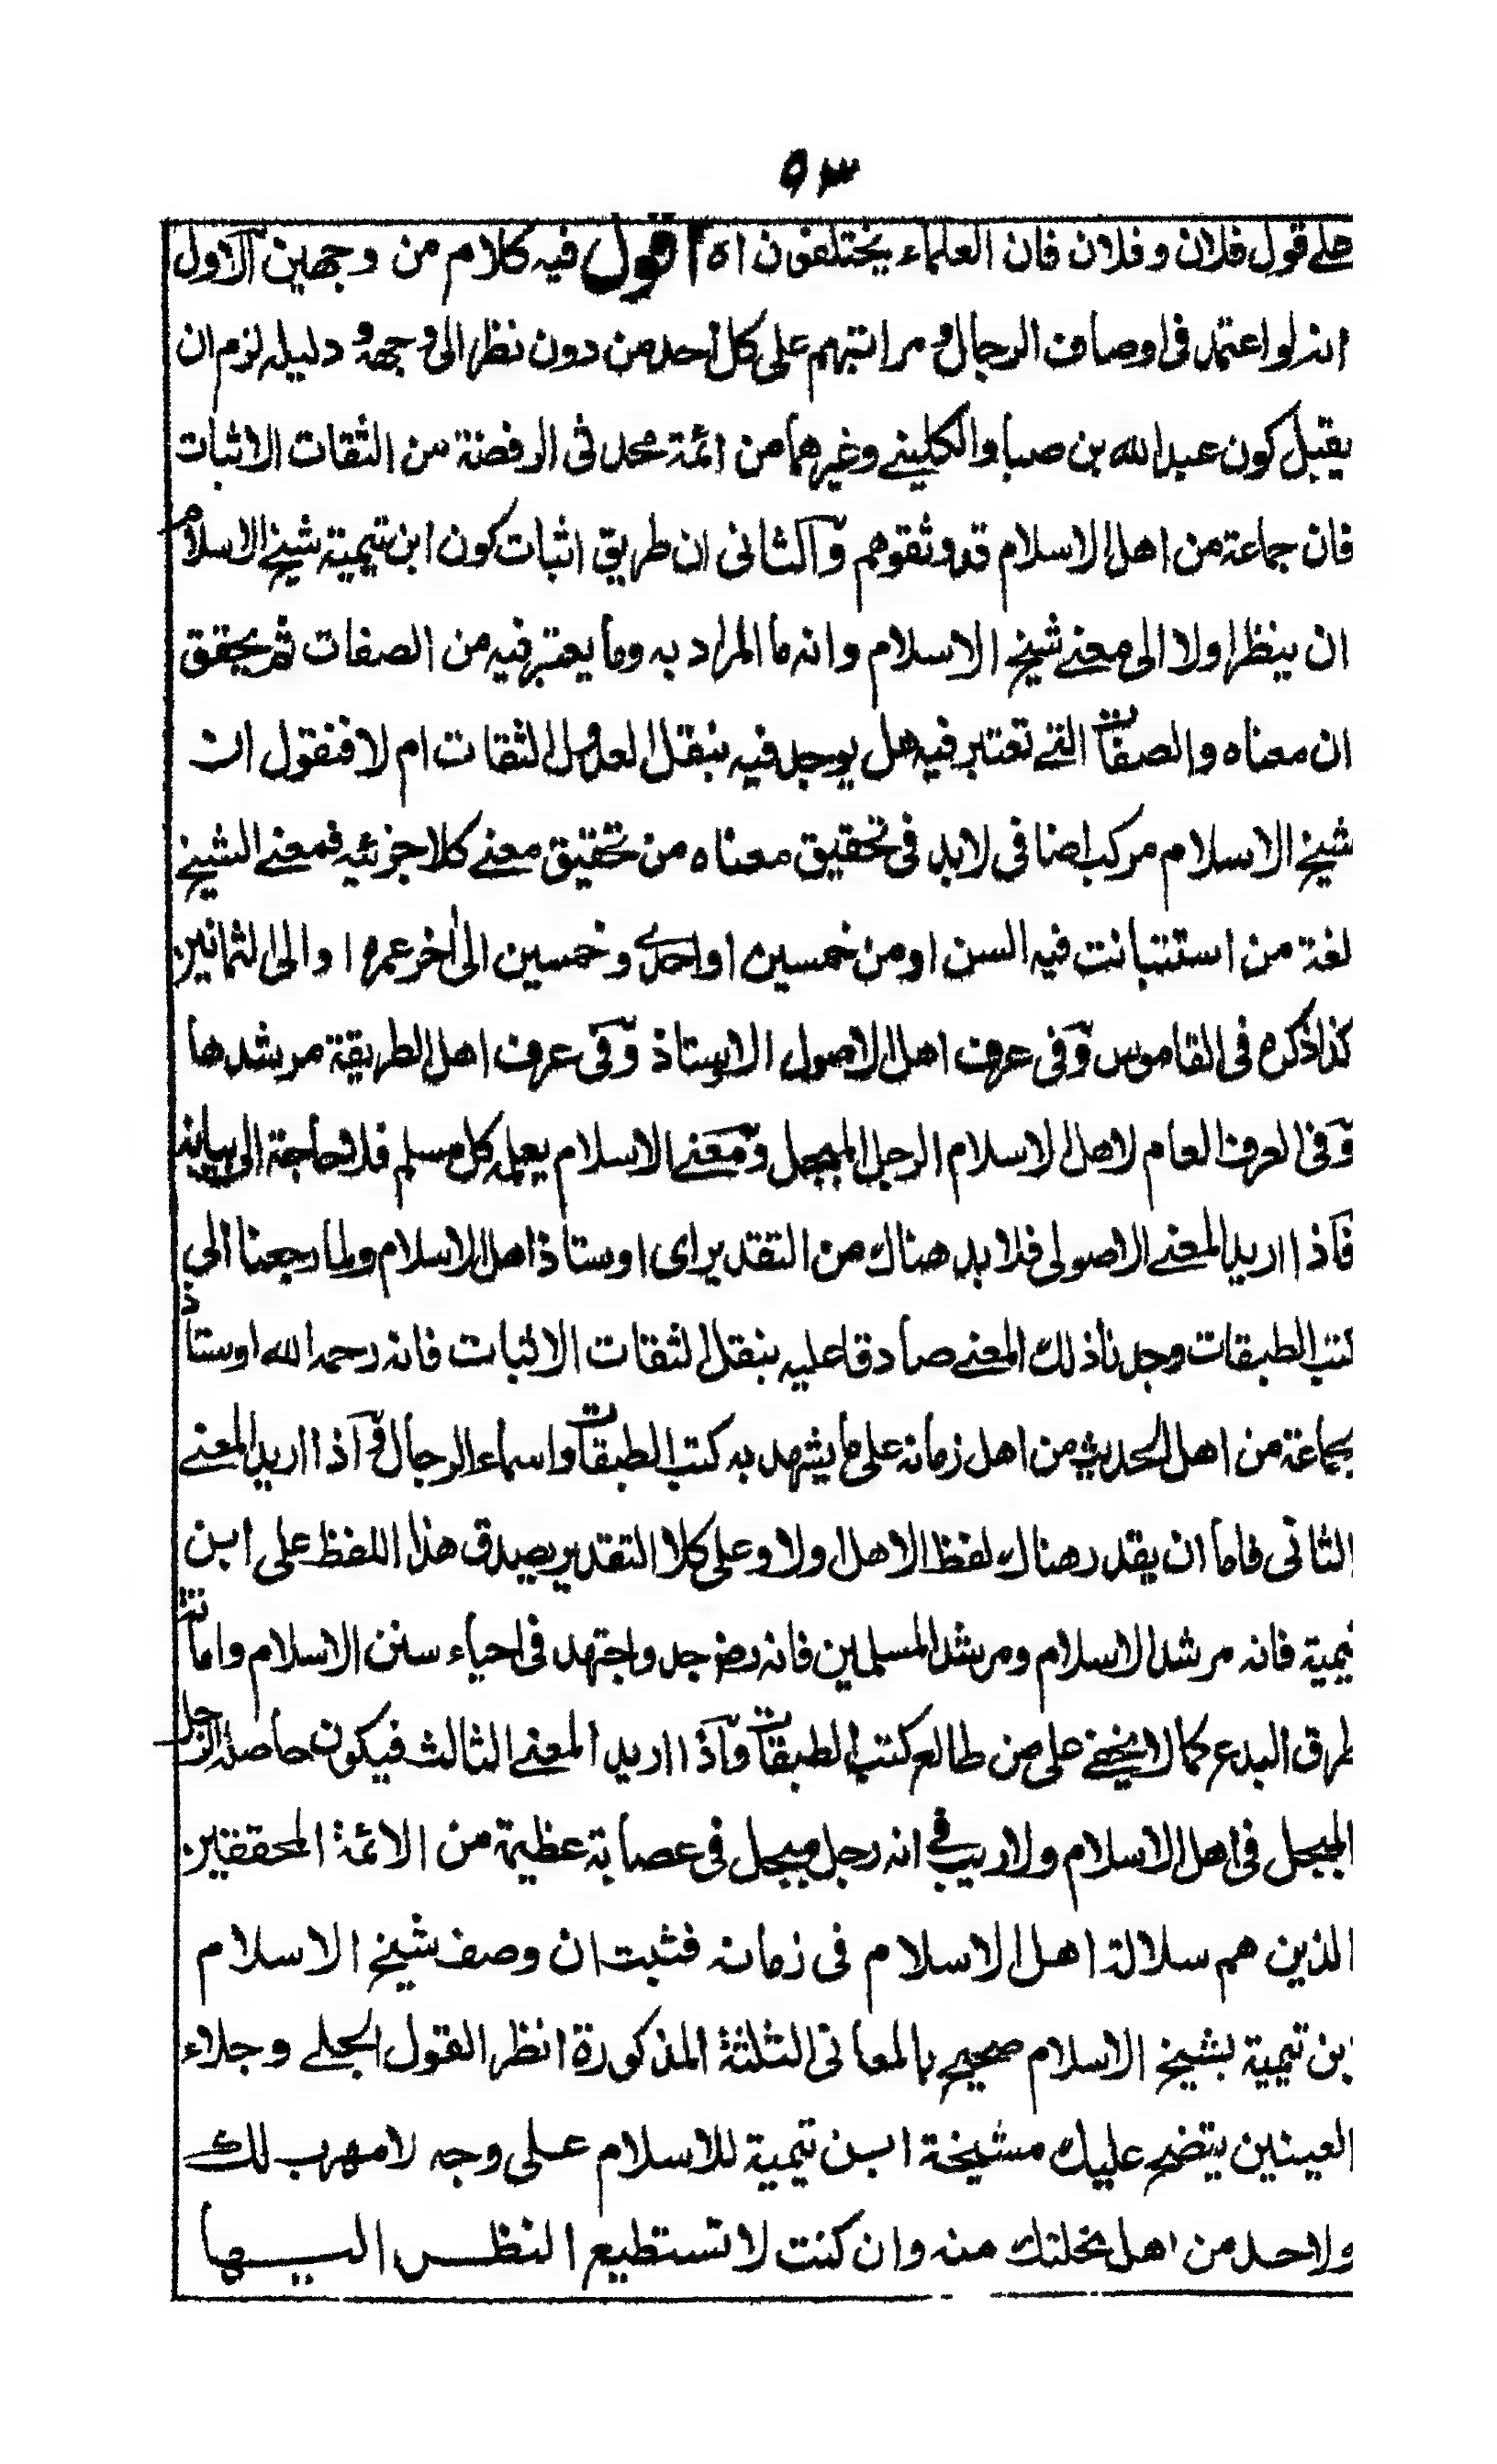 ٥٣
على قول فلان وفلان فان العلماء يختلفون اه اقول فيه كلام من وجهين الاول
انه لو اعتمد فى اوصاف الرجال ومراتبهم على كل احد من دون نظر الى وجهه ودليله لزم ان
يقبل كون عبد الله بن صبا والكلينے وغيرهما من ائمة محدثى الرفضة من الثقات الاثبات
فان جماعة من اهل الاسلام قد وثقوهم والثانى ان طريق اثبات كون ابن تيمية شيخ الاسلام
ان ينظر اولا الى معنے شيخ الاسلام وانه ما المراد به وما يعتبر فيه من الصفات ثم يحقق
ان معناه والصفات التے تعتبر فيه هل يوجد فيه بنقل العدول الثقات ام لا فنقول ان
شيخ الاسلام مركب اضافى لابد فى تحقيق معناه من تحقيق معنے كلا جزئيه فمعنے الشيخ
لغة من استتبانت فيه السن او من خمسين او احدى وخمسين الى اخر عمره او الى الثمانين
كذا ذكره فى القاموس وفى عرف اهل الاصول الاستاذ وفى عرف اهل الطريقة مرشدها
وفى العرف العام لاهل الاسلام الرجل المبجل ومعنے الاسلام يعلمه كل مسلم فلا حاجة الى بيانه
فاذا اريد المعنے الاصولى فلا بد هناك من التقدير اى اوستاذ اهل الاسلام ولما رجعنا الى
كتب الطبقات وجدنا ذلك المعنے صادقا عليه بنقل الثقات الاثبات فانه رحمه الله اوستاذ
بجماعة من اهل الحديث من اهل زمانه على ما يشهد به كتب الطبقات واسماء الرجال واذا اريد المعنے
الثانى فاما ان يقدر هناك لفظ الاهل اولا وعلى كلا التقدير يصدق هذا اللفظ على ابن
تيمية فانه مرشد الاسلام ومرشد المسلمين فانه رضـ جد واجتهد فى احياء سنن الاسلام واماتة
طرق البدع كما لا يخفے على من طالع كتب الطبقات واذا اريد المعنے الثالث فيكون حاصله الرجل
المبجل فى اهل الاسلام ولا ريب فى انه رجل مبجل فى عصابة عظيمة من الائمة المحققين
الذين هم سلالة اهل الاسلام فى زمانه فثبت ان وصف شيخ الاسلام
بن تيمية بشيخ الاسلام صحيح بالمعانى الثلثة المذكورة انظر القول الجلے وجلاء
العينين يتضح عليك مشيخة ابن تيمية للاسلام على وجه لا مهرب لك
ولاحد من اهل نحلتك منه وان كنت لا تستطيع النظر اليها